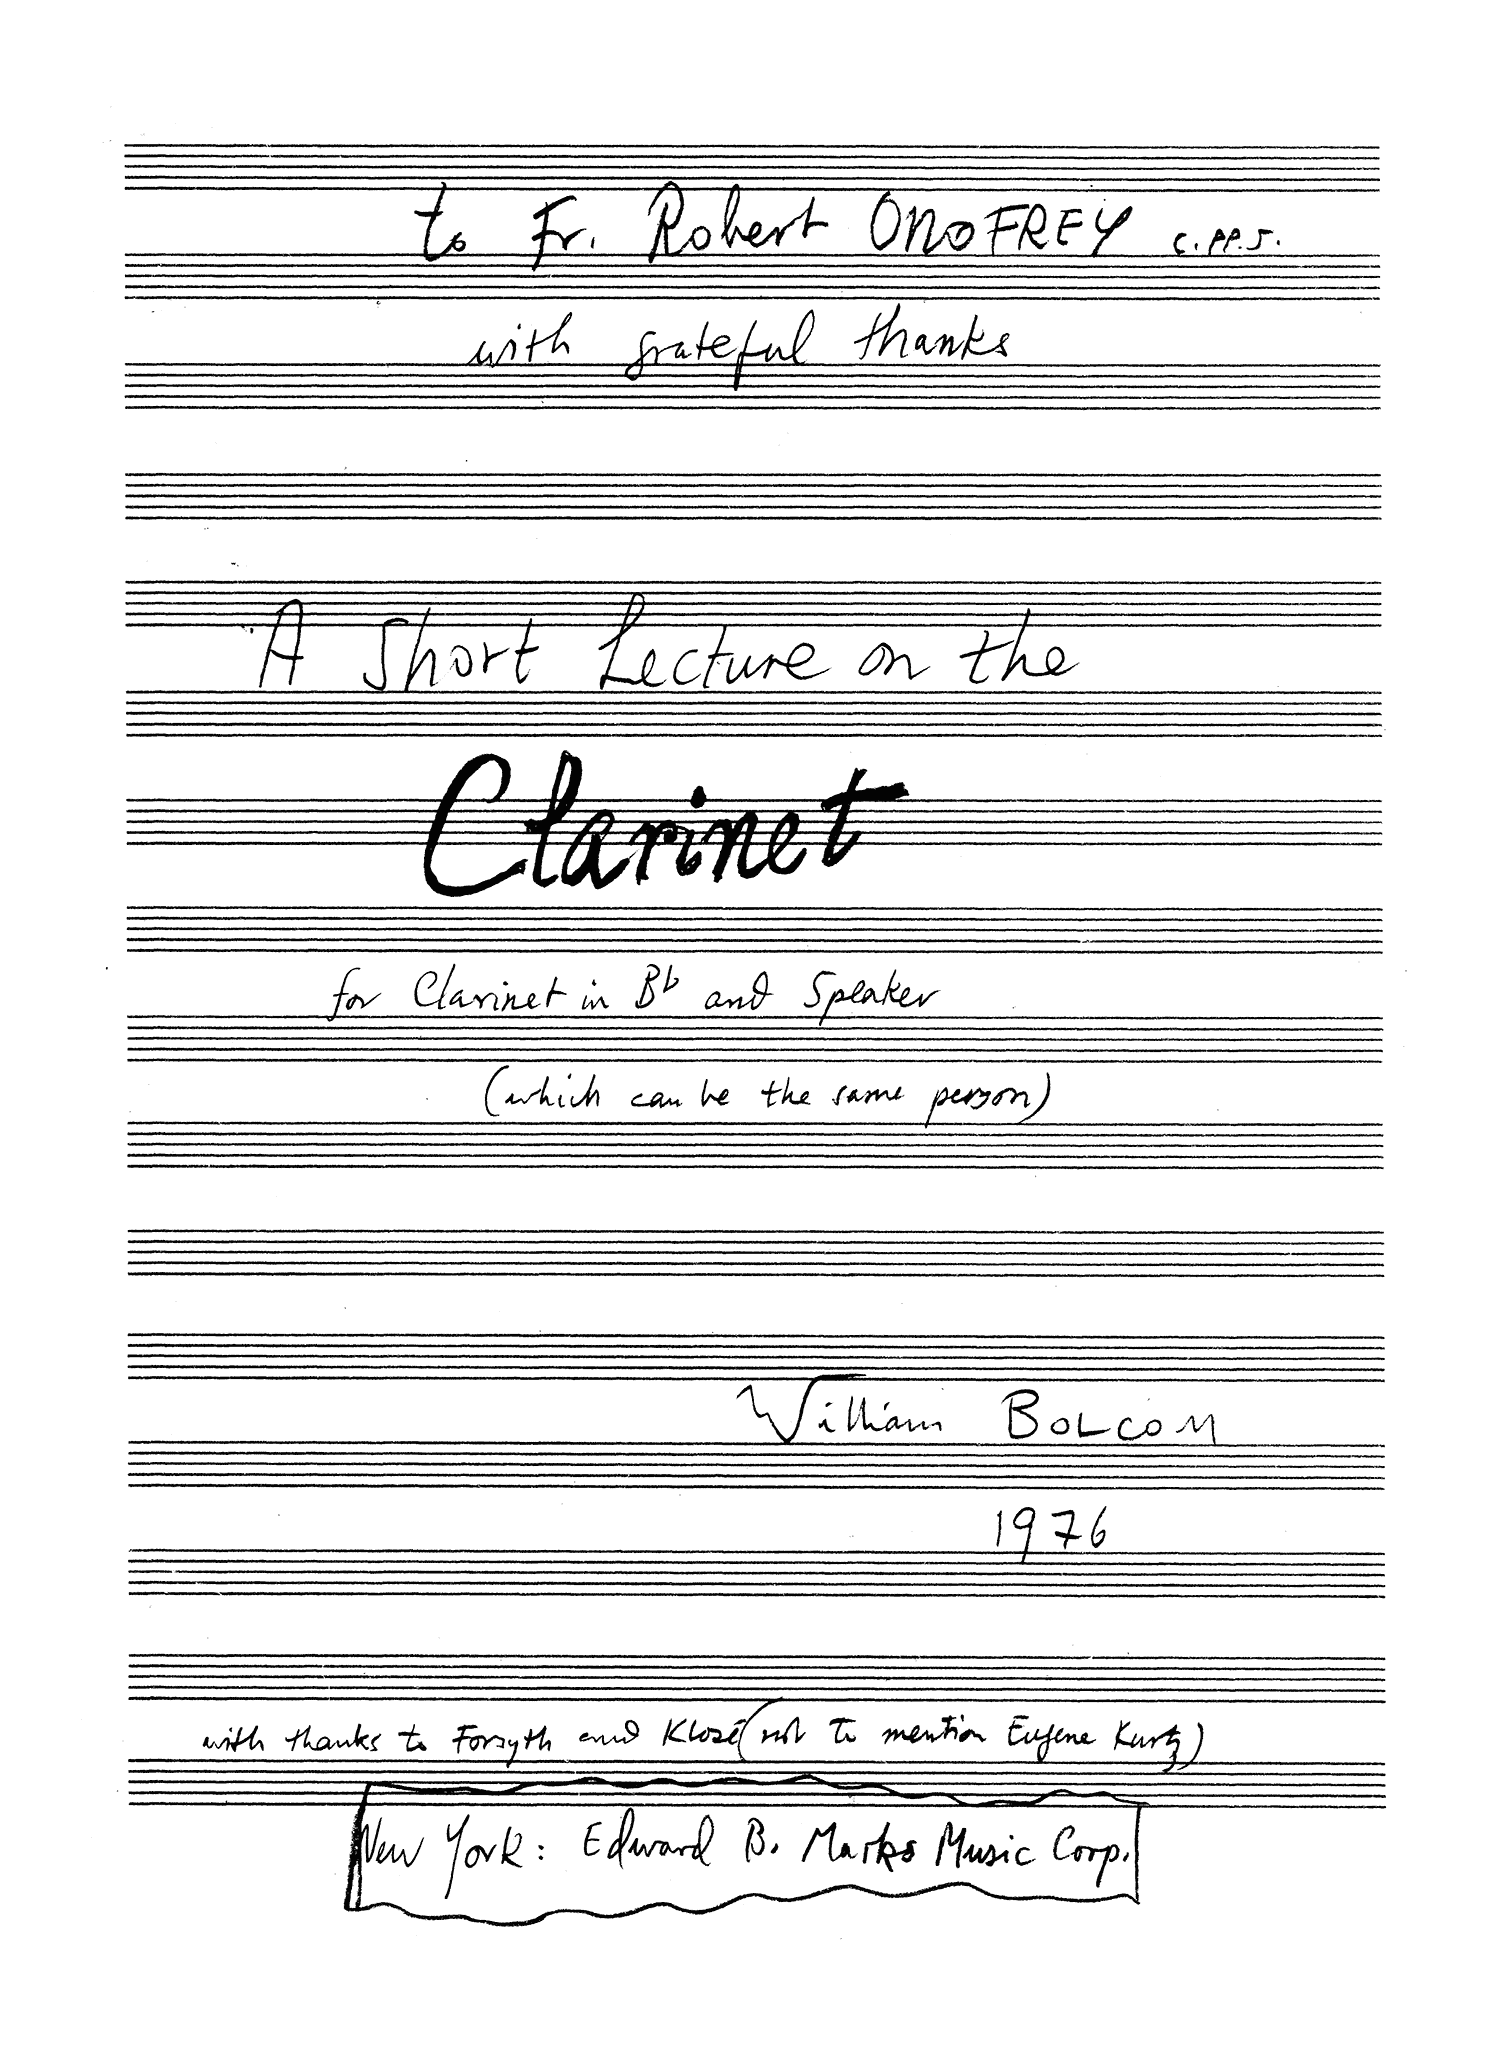 to Fr. Robert ONOFREY C.PP.S.
with grateful thanks
A Short Lecture on the
Clarinet
for Clarinet in B♭ and Speaker
(which can be the same person)
William BOLCOM
1976
with thanks to Forsyth and Klosé (not to mention Eugene Kurtz)
New York: Edward B. Marks Music Corp.